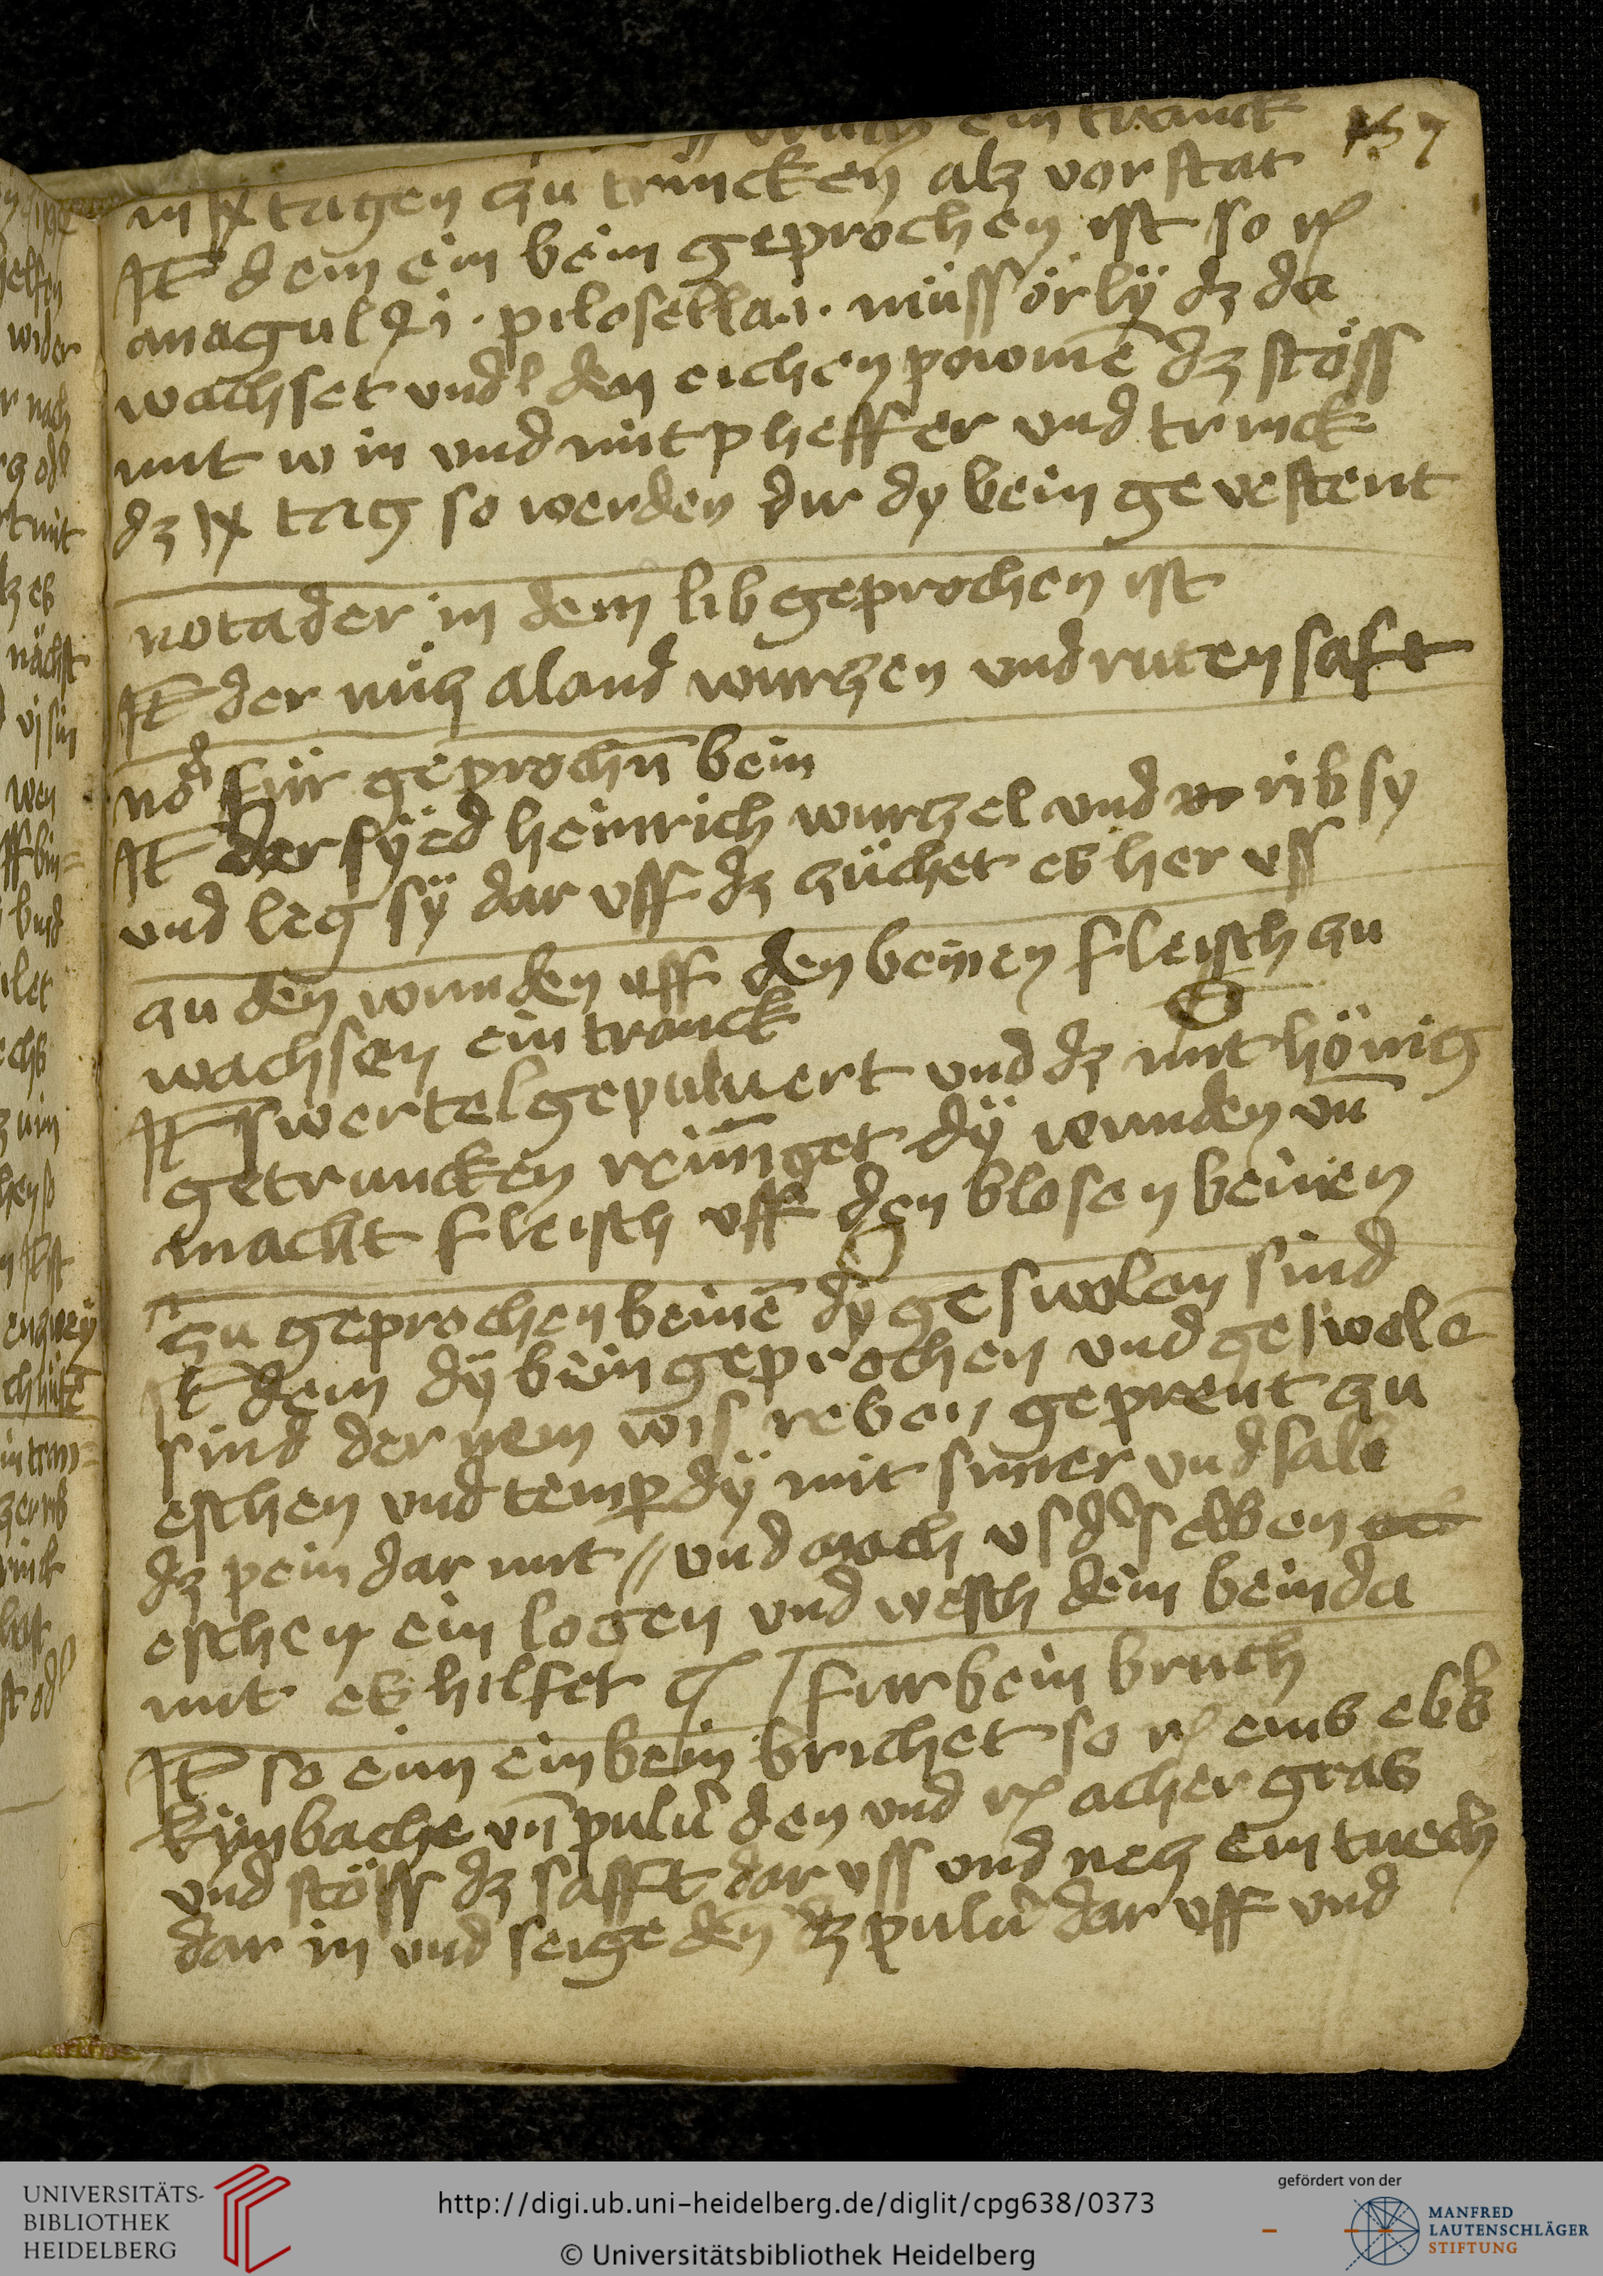 ein tranck
in ix tagen zu trincken alz vor stat
It dem ein bein geprochen ist so rͦ
anagul di · pilosella .i. müssörlÿ dz da
wachset vnd' den eichen powmē dz stöss
mit win vnd mit pheffer vnd trinck
dz ix tag so werden dir dy bein gevestent
nota der in dem lib geprochen ist
It der nütz aland wurtzen vnd ruten saft
für geprochn̄ bein
It der sÿed heinrich wurtzel vnd rib sy
vnd leg sÿ dar vff dz züchet es her vss
zu den wunden vff den beinen fleisch zu
wachsen ein tranck
It swertel gepuluert vnd dz mit hönig
getruncken reiniget dÿ wunden vn̄
macht fleisch vff den blosen beinen
zu geprochen beinē dÿ geswolen sind
It dem dÿ bein geprochen vnd geswolē
sind der nem wis reben geprent zu
eschen vnd temper dÿ mit smer vnd salb
dz pein dar mit // vnd mach vs d's elben
eschen ein logen vnd wesch dein bein da
mit es hilfet
fur bein bruch
It so eim ein bein brichet so rͦ eins ebb
kÿnbache vn̄ pulu' den vnd rͦ acher gras
vnd stöss dz safft dar vss vnd netz ein tuech
dar in vnd seige den̄ dz pulu' dar vff vnd
UNIVERSITÄTS-
BIBLIOTHEK
HEIDELBERG
http://digi.ub.uni-heidelberg.de/diglit/cpg638/0373
© Universitätsbibliothek Heidelberg
gefördert von der
MANFRED
LAUTENSCHLÄGER
STIFTUNG